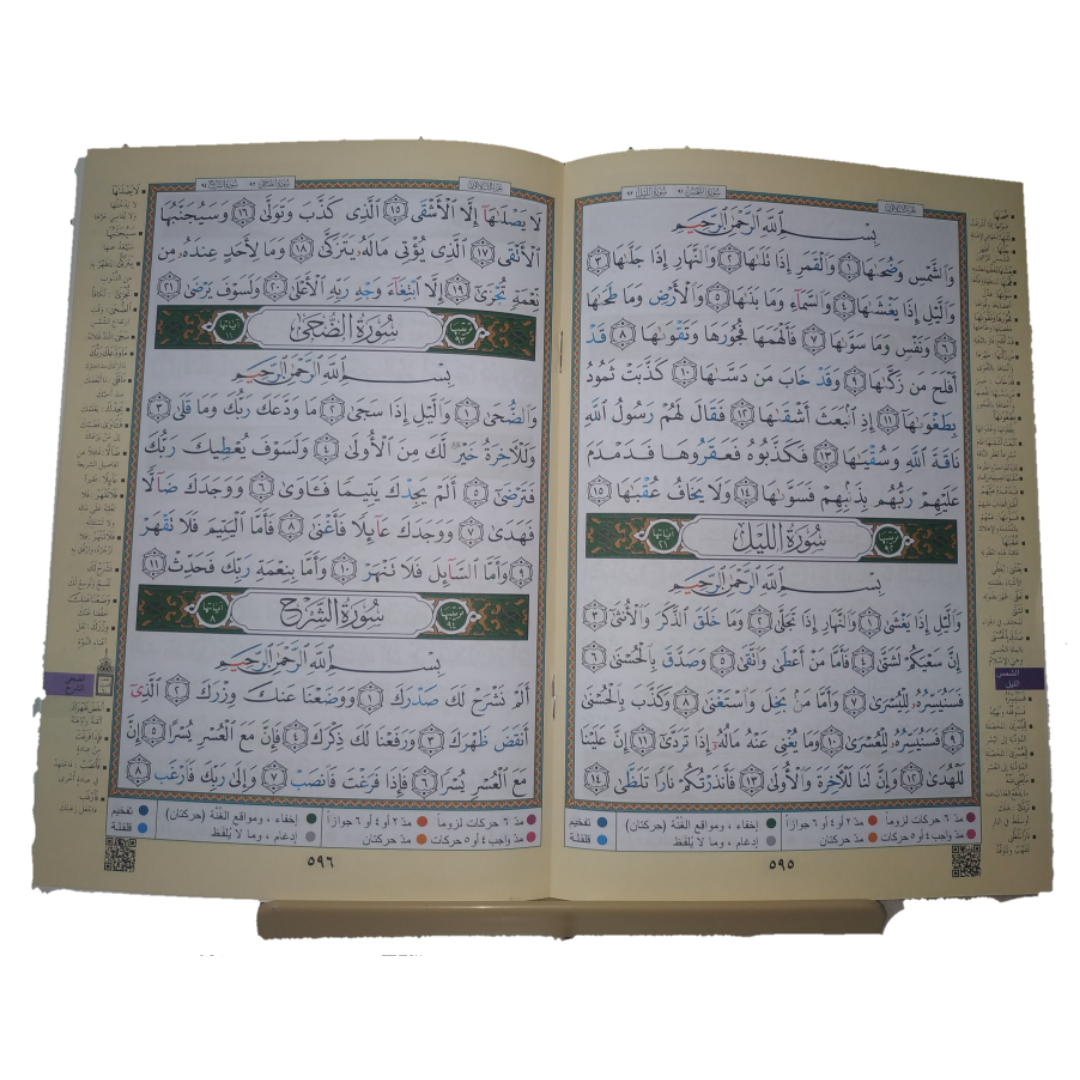 سورة الشمس ٩١
سورة الليل ٩٢
بِسْمِ ٱللَّهِ ٱلرَّحْمَٰنِ ٱلرَّحِيمِ
وَٱلشَّمْسِ وَضُحَىٰهَا ١ وَٱلْقَمَرِ إِذَا تَلَىٰهَا ٢ وَٱلنَّهَارِ إِذَا جَلَّىٰهَا ٣
وَٱلَّيْلِ إِذَا يَغْشَىٰهَا ٤ وَٱلسَّمَآءِ وَمَا بَنَىٰهَا ٥ وَٱلْأَرْضِ وَمَا طَحَىٰهَا
٦ وَنَفْسٍ وَمَا سَوَّىٰهَا ٧ فَأَلْهَمَهَا فُجُورَهَا وَتَقْوَىٰهَا ٨ قَدْ
أَفْلَحَ مَن زَكَّىٰهَا ٩ وَقَدْ خَابَ مَن دَسَّىٰهَا ١٠ كَذَّبَتْ ثَمُودُ
بِطَغْوَىٰهَآ ١١ إِذِ ٱنۢبَعَثَ أَشْقَىٰهَا ١٢ فَقَالَ لَهُمْ رَسُولُ ٱللَّهِ
نَاقَةَ ٱللَّهِ وَسُقْيَٰهَا ١٣ فَكَذَّبُوهُ فَعَقَرُوهَا فَدَمْدَمَ
عَلَيْهِمْ رَبُّهُم بِذَنۢبِهِمْ فَسَوَّىٰهَا ١٤ وَلَا يَخَافُ عُقْبَٰهَا ١٥
ترتيبها ٩٢ سُورَةُ اللَّيْلِ آياتها ٢١
بِسْمِ ٱللَّهِ ٱلرَّحْمَٰنِ ٱلرَّحِيمِ
وَٱلَّيْلِ إِذَا يَغْشَىٰ ١ وَٱلنَّهَارِ إِذَا تَجَلَّىٰ ٢ وَمَا خَلَقَ ٱلذَّكَرَ وَٱلْأُنثَىٰٓ ٣
إِنَّ سَعْيَكُمْ لَشَتَّىٰ ٤ فَأَمَّا مَنْ أَعْطَىٰ وَٱتَّقَىٰ ٥ وَصَدَّقَ بِٱلْحُسْنَىٰ ٦
فَسَنُيَسِّرُهُۥ لِلْيُسْرَىٰ ٧ وَأَمَّا مَنۢ بَخِلَ وَٱسْتَغْنَىٰ ٨ وَكَذَّبَ بِٱلْحُسْنَىٰ
٩ فَسَنُيَسِّرُهُۥ لِلْعُسْرَىٰ ١٠ وَمَا يُغْنِى عَنْهُ مَالُهُۥٓ إِذَا تَرَدَّىٰٓ ١١ إِنَّ عَلَيْنَا
لَلْهُدَىٰ ١٢ وَإِنَّ لَنَا لَلْءَاخِرَةَ وَٱلْأُولَىٰ ١٣ فَأَنذَرْتُكُمْ نَارًا تَلَظَّىٰ ١٤
الشمس
الليل
مدّ ٦ حركات لزوماً مدّ ٢ أو ٤ أو ٦ جوازاً إخفاء ، ومواقع الغُنَّة (حركتان) تفخيم
مدّ واجب ٤ أو ٥ حركات مدّ حركتان إدغام ، وما لا يُلفَظ قلقلة
٥٩٥
سورة الضحى ٩٣
سورة الشرح ٩٤
لَا يَصْلَىٰهَآ إِلَّا ٱلْأَشْقَى ١٥ ٱلَّذِى كَذَّبَ وَتَوَلَّىٰ ١٦ وَسَيُجَنَّبُهَا
ٱلْأَتْقَى ١٧ ٱلَّذِى يُؤْتِى مَالَهُۥ يَتَزَكَّىٰ ١٨ وَمَا لِأَحَدٍ عِندَهُۥ مِن
نِّعْمَةٍ تُجْزَىٰٓ ١٩ إِلَّا ٱبْتِغَآءَ وَجْهِ رَبِّهِ ٱلْأَعْلَىٰ ٢٠ وَلَسَوْفَ يَرْضَىٰ ٢١
ترتيبها ٩٣ سُورَةُ الضُّحَىٰ آياتها ١١
بِسْمِ ٱللَّهِ ٱلرَّحْمَٰنِ ٱلرَّحِيمِ
وَٱلضُّحَىٰ ١ وَٱلَّيْلِ إِذَا سَجَىٰ ٢ مَا وَدَّعَكَ رَبُّكَ وَمَا قَلَىٰ ٣
وَلَلْءَاخِرَةُ خَيْرٌ لَّكَ مِنَ ٱلْأُولَىٰ ٤ وَلَسَوْفَ يُعْطِيكَ رَبُّكَ
فَتَرْضَىٰٓ ٥ أَلَمْ يَجِدْكَ يَتِيمًا فَـَٔاوَىٰ ٦ وَوَجَدَكَ ضَآلًّا
فَهَدَىٰ ٧ وَوَجَدَكَ عَآئِلًا فَأَغْنَىٰ ٨ فَأَمَّا ٱلْيَتِيمَ فَلَا تَقْهَرْ
٩ وَأَمَّا ٱلسَّآئِلَ فَلَا تَنْهَرْ ١٠ وَأَمَّا بِنِعْمَةِ رَبِّكَ فَحَدِّثْ ١١
ترتيبها ٩٤ سُورَةُ الشَّرْحِ آياتها ٨
بِسْمِ ٱللَّهِ ٱلرَّحْمَٰنِ ٱلرَّحِيمِ
أَلَمْ نَشْرَحْ لَكَ صَدْرَكَ ١ وَوَضَعْنَا عَنكَ وِزْرَكَ ٢ ٱلَّذِىٓ
أَنقَضَ ظَهْرَكَ ٣ وَرَفَعْنَا لَكَ ذِكْرَكَ ٤ فَإِنَّ مَعَ ٱلْعُسْرِ يُسْرًا ٥ إِنَّ
مَعَ ٱلْعُسْرِ يُسْرًا ٦ فَإِذَا فَرَغْتَ فَٱنصَبْ ٧ وَإِلَىٰ رَبِّكَ فَٱرْغَب ٨
الضحى
الشرح
مدّ ٦ حركات لزوماً مدّ ٢ أو ٤ أو ٦ جوازاً إخفاء ، ومواقع الغُنَّة (حركتان) تفخيم
مدّ واجب ٤ أو ٥ حركات مدّ حركتان إدغام ، وما لا يُلفَظ قلقلة
٥٩٦